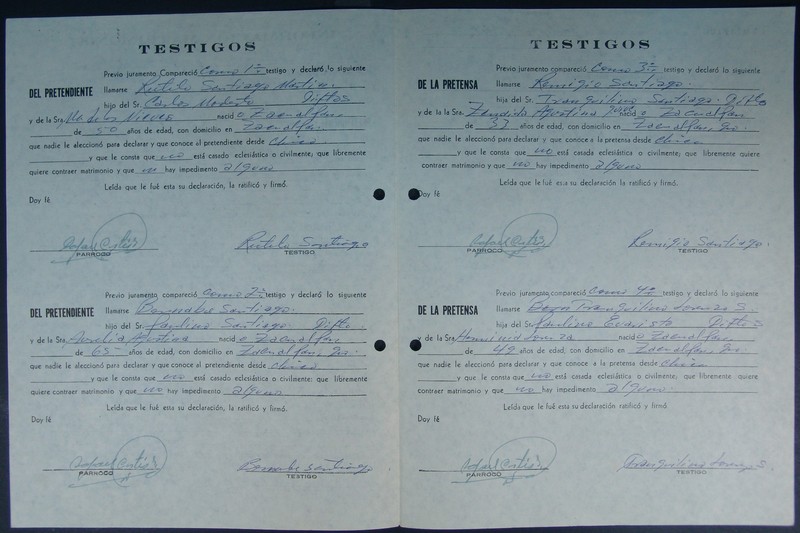 TESTIGOS
Previo juramento Compareció Como 1º testigo y declaró lo siguiente
DEL PRETENDIENTE llamarse Rutilo Santiago
hijo del Sr. Carlos Modesto Diftos
y de la Sra. nació Zacualpan
de 50 años de edad, con domicilio en Zacualpan.
que nadie le aleccionó para declarar y que conoce al pretendiente desde chico
y que le consta que no está casado eclesiástica o civilmente; que libremente
quiere contraer matrimonio y que no hay impedimento alguno
Leída que le fué esta su declaración, la ratificó y firmó.
Doy fé
Rutilo Santiago
PARROCO TESTIGO
Previo juramento compareció Como 2º testigo y declaró lo siguiente
DEL PRETENDIENTE llamarse Bernabe Santiago.
hijo del Sr. Paulino Santiago Difto.
y de la Sra. Aurelia Agustina nació Zacualpan
de 65 años de edad, con domicilio en Zacualpan, Gro.
que nadie le aleccionó para declarar y que conoce al pretendiente desde chico
y que le consta que no está casada eclesiástica o civilmente; que libremente
quiere contraer matrimonio y que no hay impedimento alguno
Leída que le fué esta su declaración la ratificó y firmó.
Doy fé
Bernabe santiago
PÁRROCO TESTIGO
TESTIGOS
Previo juramento compareció Como 3º testigo y declaró lo siguiente
DE LA PRETENSA llamarse Remigio Santiago.
hija del Sr. Tranquilino Santiago Difto
y de la Sra. Agustina nació Zacualpan
de 37 años de edad, con domicilio en Zacualpan, Gro.
que nadie le aleccionó para declarar y que conoce a la pretensa desde chica
y que le consta que no está casada eclesiástica o civilmente; que libremente quiere
contraer matrimonio y que no hay impedimento alguno
Leída que le fué esta su declaración, la ratificó y firmó.
Doy fé
Remigio Santiago.
PARROCO TESTIGO
Previo juramento, compareció Como 4º testigo y declaró lo siguiente
DE LA PRETENSA llamarse Tranquilino Lorenzo S.
hijo del Sr. Paulino Evaristo Diftos
y de la Sra. nació Zacualpan
de 49 años de edad, con domicilio en Zacualpan, Gro.
que nadie le aleccionó para declarar y que conoce a la pretensa desde chica
y que le consta que no está casada eclesiástica o civilmente; que libremente quiere
contraer matrimonio y que no hay impedimento alguno.
Leída que le fué esta su declaración la ratificó y firmó.
Doy fé
Tranquilino Lorenzo S.
PÁRROCO TESTIGO